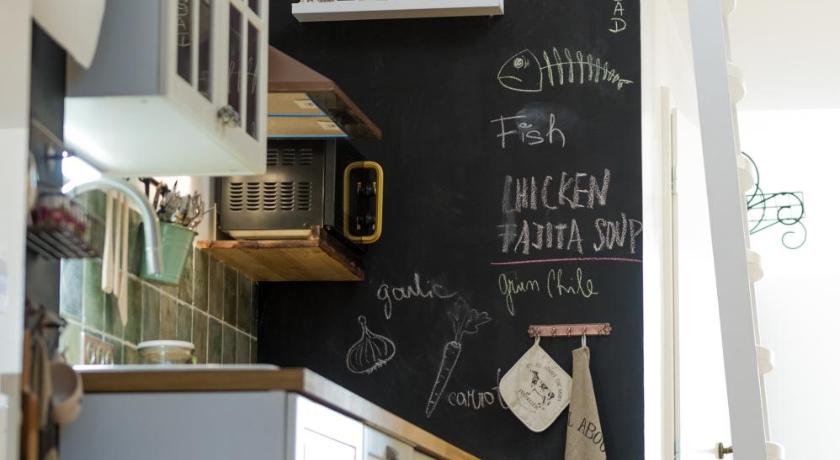 Fish
CHICKEN
FAJITA SOUP
Grun Chile
garlic
carrot
L ABOU